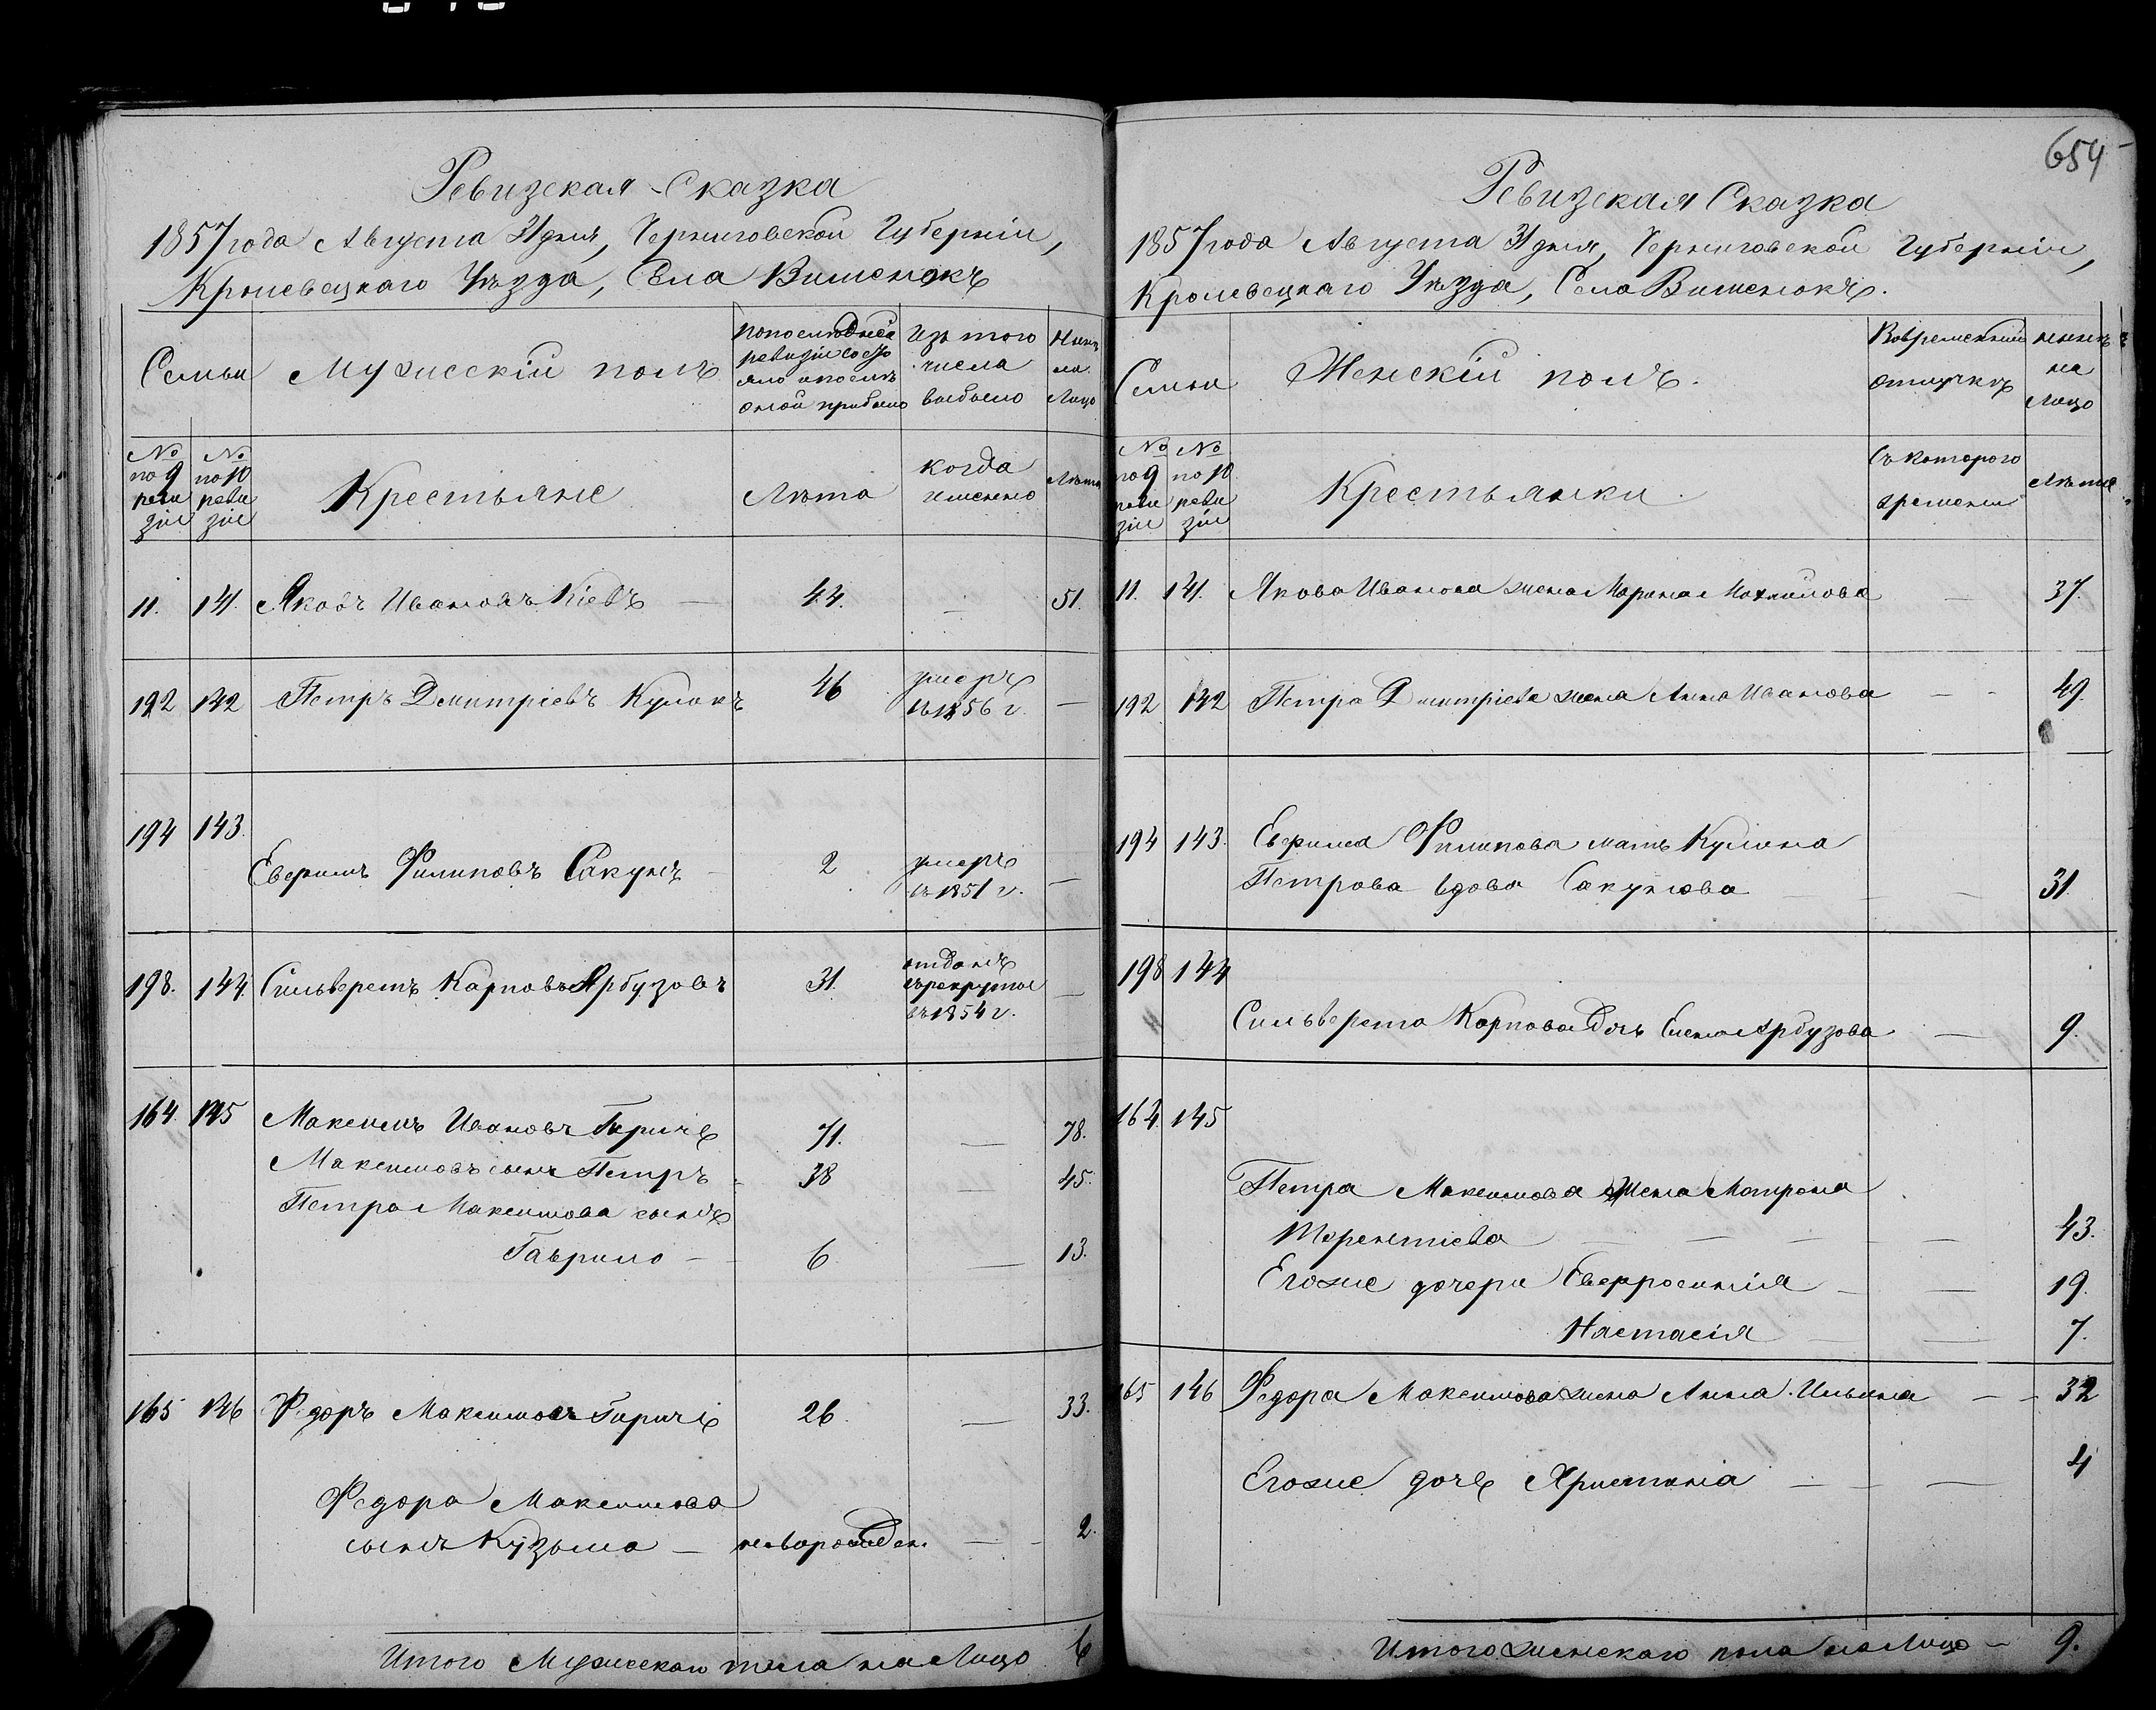 Ревизская Сказка
1857 года Августа 31 дня, Черниговской Губерніи,
Кролевецкаго Уѣзда, Села Вишенокъ
Семьи Мужескій полъ
По последней ревизіи состояло и после оной прибыло
Изъ того числа выбыло
Нынѣ на Лицо
№ по 9 ревизіи
№ по 10 ревизіи
Крестьяне
Лѣта
когда именно
Лѣта
11. 141. Яковъ Ивановъ Кіевъ — 44. — 51.
192 142 Петръ Дмитріевъ Кулакъ 46 умеръ въ 1856 г. —
194 143.
Ефримъ Филиповъ Сакунъ 2 умеръ въ 1851 г. —
198. 144. Сильверстъ Карповъ Арбузовъ 31. отданъ въ рекруты въ 1854 г. —
164. 145 Максимъ Ивановъ Гиричъ 71. — 78.
Максимовъ сынъ Петръ 38 — 45.
Петра Максимова сынъ
Гаврило — 6 — 13.
165 146 Федоръ Максимовъ Гиричъ 26. — 33.
Федора Максимова
сынъ Кузьма — новорожден. — 2.
Итого Мужескаго пола на Лицо 6
654
Ревизская Сказка
1857 года Августа 31 дня, Черниговской Губерніи,
Кролевецкаго Уѣзда, Села Вишенокъ.
Семьи Женскій полъ.
Во временной отлучкѣ
нынѣ на Лицо
№ по 9 ревизіи
№ по 10 ревизіи
Крестьянки
Съ которого времени
Лѣта
11. 141. Якова Иванова жена Марина Михайлова — 37.
192 142 Петра Дмитріева жена Анна Иванова — 49.
194 143. Ефрима Филипова мать Кулина
Петрова вдова Сакунова — 31.
198 144
Сильверста Карпова дочь Елена Арбузова — 9.
164. 145
Петра Максимова Жена Матрона
Терентіева — 43.
Егоже дочери Евфросинія — 19.
Настасія — 7.
165 146 Федора Максимова жена Анна Ильина — 32
Егоже дочь Христинія — 4
Итого женскаго пола на Лицо — 9.